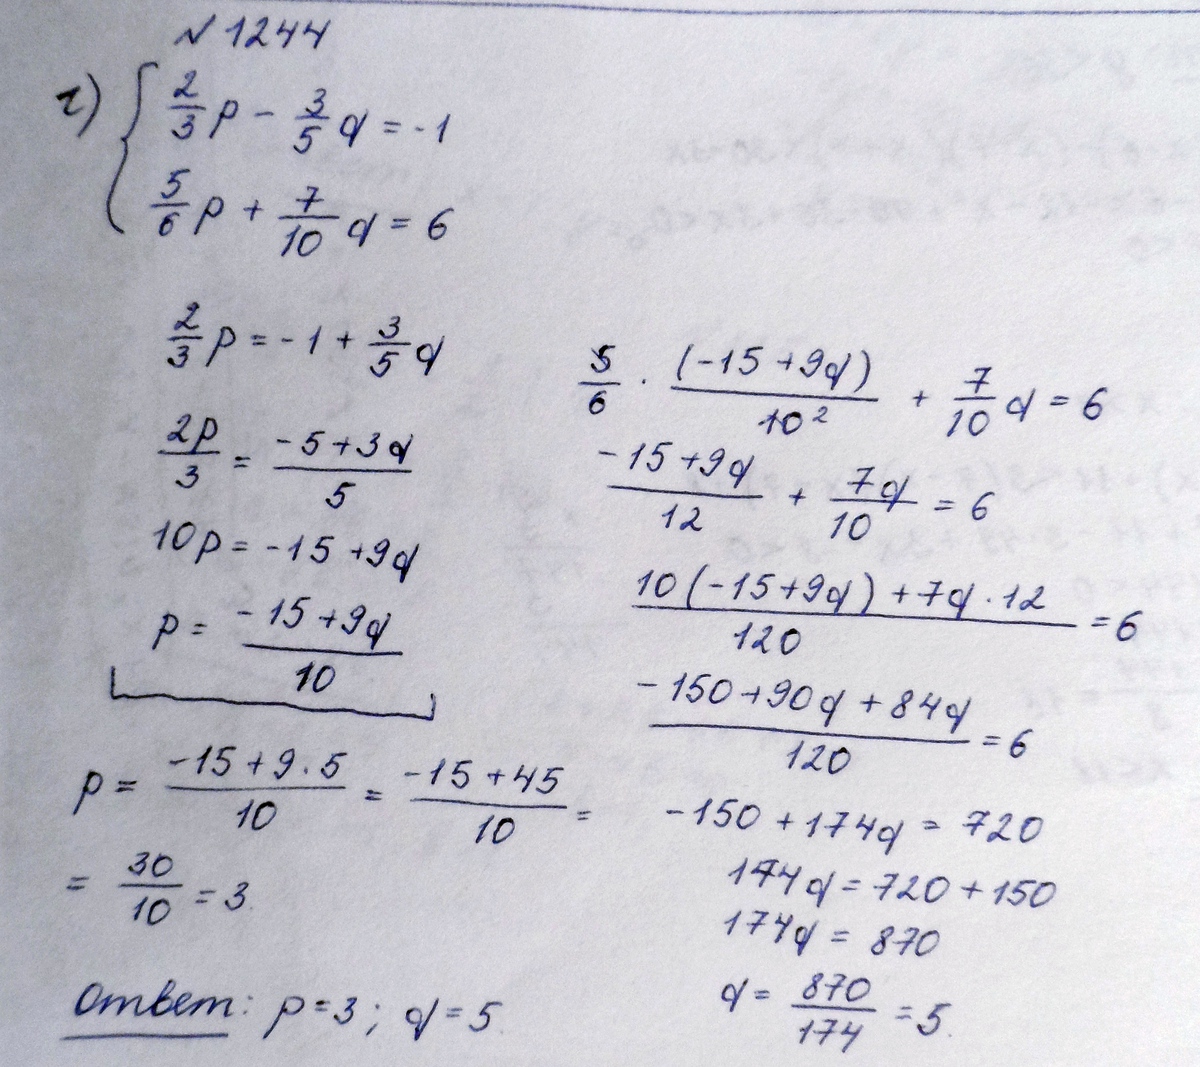 №1244
г) { 2/3 p - 3/5 q = -1
5/6 p + 7/10 q = 6
2/3 p = -1 + 3/5 q
2p/3 = (-5+3q)/5
10p = -15 +9q
p = (-15+9q)/10
p = (-15+9·5)/10 = (-15+45)/10 =
= 30/10 = 3.
5/6 · (-15+9q)/10 2 + 7/10 q = 6
(-15+9q)/12 + 7q/10 = 6
(10(-15+9q)+7q·12)/120 = 6
(-150+90q+84q)/120 = 6
-150+174q = 720
174q = 720+150
174q = 870
q = 870/174 = 5.
Ответ: p=3; q=5.